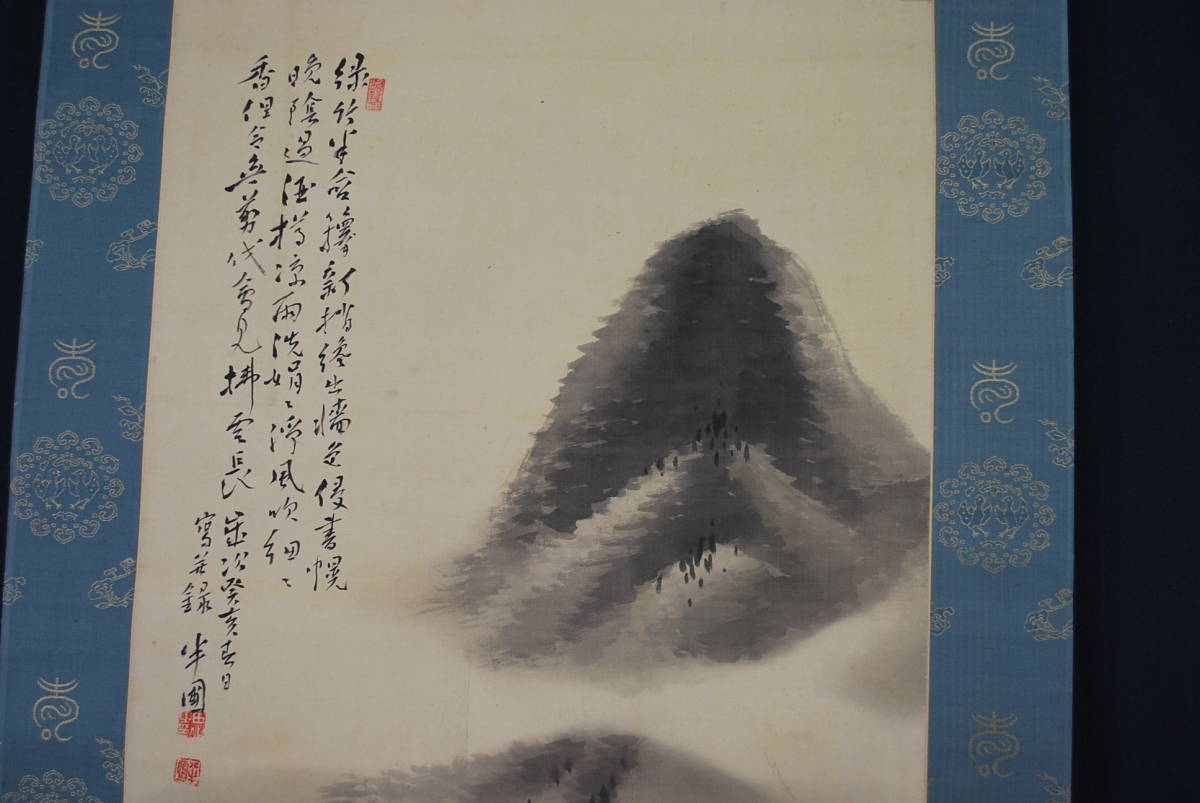 緑竹半含籜新梢纔出墻色侵書幌
晩陰過酒樽涼雨洗娟〻浄風吹細〻
香但令無剪伐會見拂雲長
歳次癸亥春日
寫并録 半